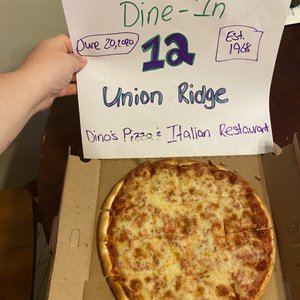 Dine-In
June 20, 2020
12
Est. 1968
Union Ridge
Dino's Pizza & Italian Restaurant